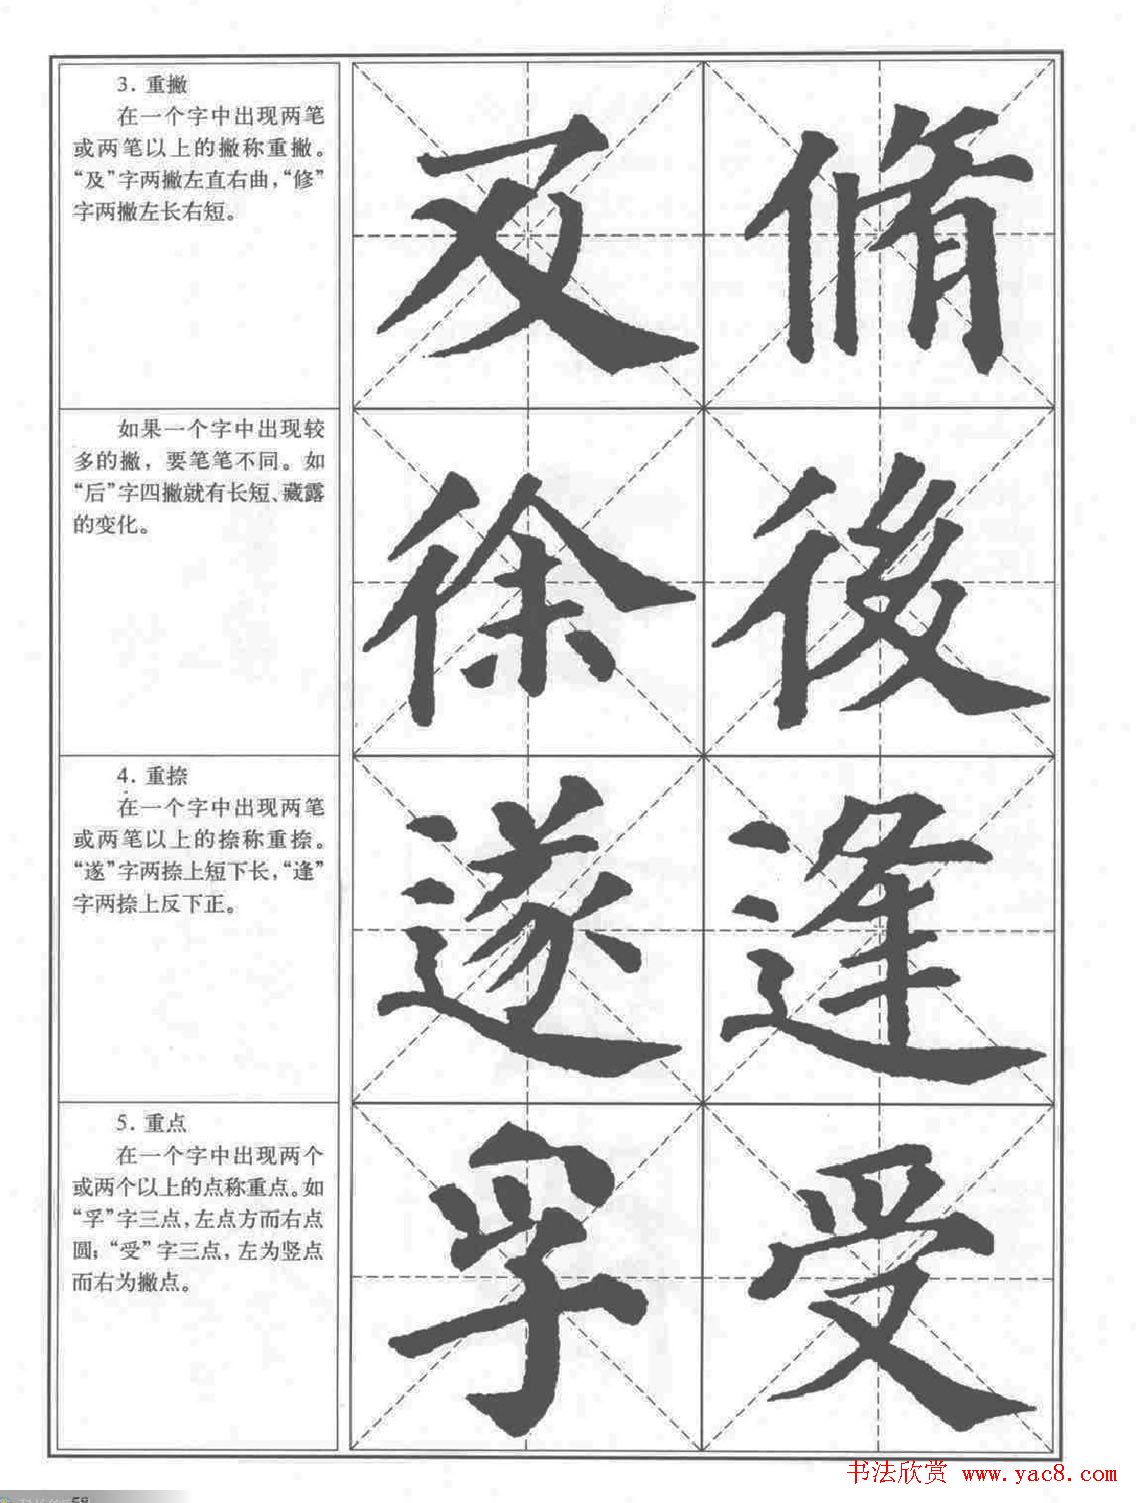 3. 重撇
在一个字中出现两笔
或两笔以上的撇称重撇。
“及”字两撇左直右曲，“修”
字两撇左长右短。
及 脩
如果一个字中出现较
多的撇，要笔笔不同。如
“后”字四撇就有长短、藏露
的变化。
徐 後
4. 重捺
在一个字中出现两笔
或两笔以上的捺称重捺。
“遂”字两捺上短下长，“逢”
字两捺上反下正。
遂 逢
5. 重点
在一个字中出现两个
或两个以上的点称重点。如
“孚”字三点，左点方而右点
圆；“受”字三点，左为竖点
而右为撇点。
孚 受
书法欣赏 www.yac8.com
58